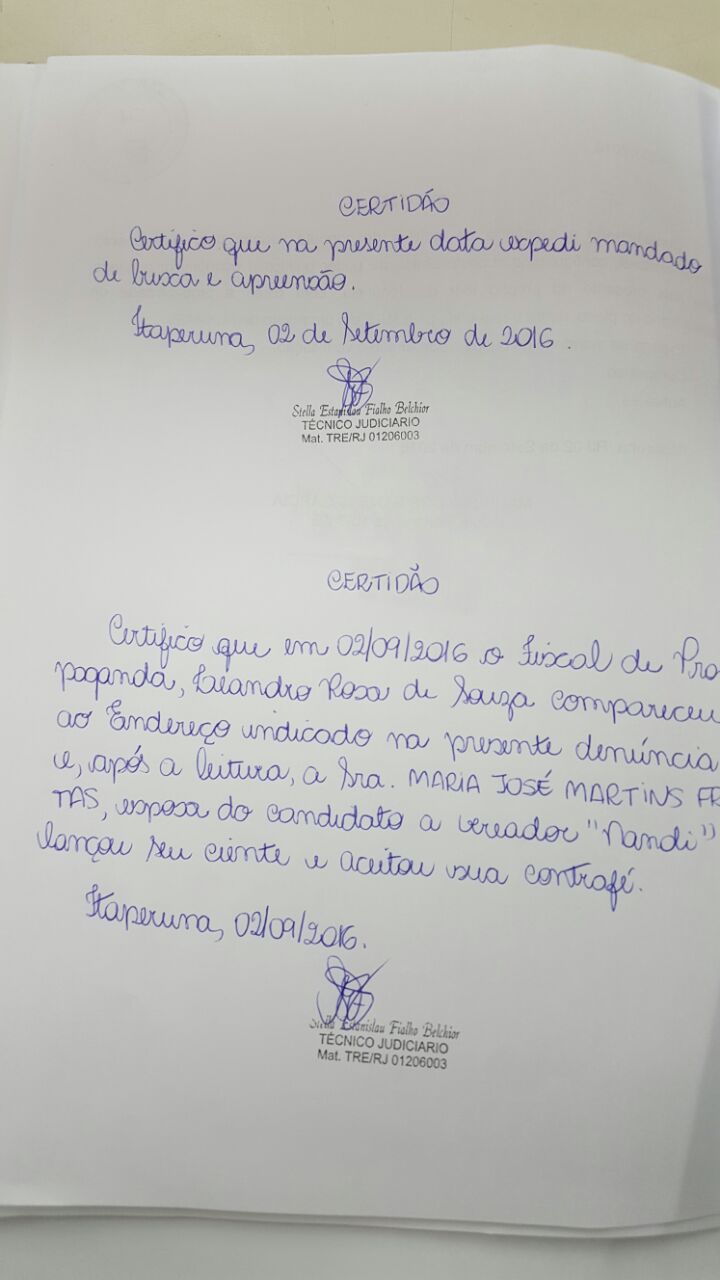 CERTIDÃO
Certifico que na presente data expedi mandado
de busca e apreensão.
Itaperuna, 02 de Setembro de 2016.
Stella Estanislau Fialho Belchior
TÉCNICO JUDICIARIO
Mat. TRE/RJ 01206003
CERTIDÃO
Certifico que em 02/09/2016 o Fiscal de Pro
paganda, Leandro Rosa de Souza compareceu
ao Endereço indicado na presente denúncia
e, após a leitura, a Sra. MARIA JOSÉ MARTINS FR
TAS, esposa do candidato a vereador "Nandi"
lançou seu ciente e aceitou sua contrafé.
Itaperuna, 02/09/2016.
Stella Estanislau Fialho Belchior
TÉCNICO JUDICIARIO
Mat. TRE/RJ 01206003